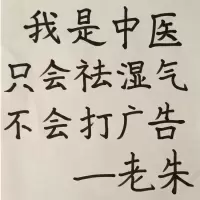 我是中医
只会祛湿气
不会打广告
—老朱